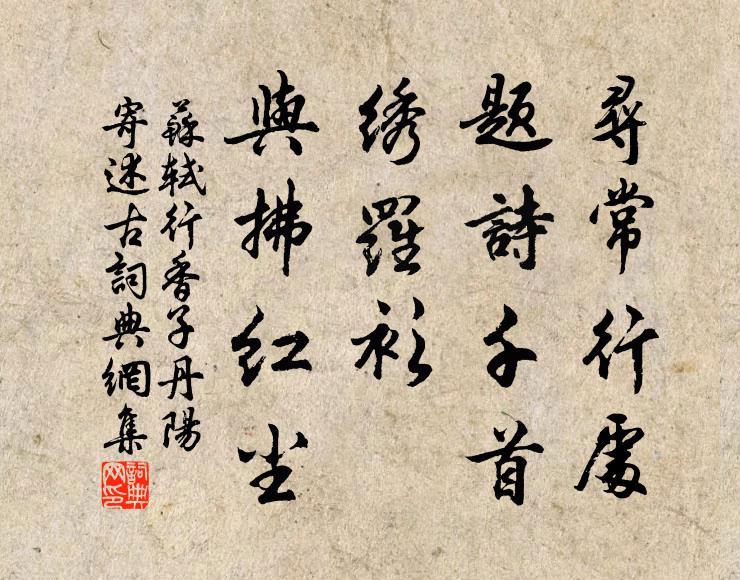 尋常行處
題詩千首
綉羅衫
與拂紅尘
蘇軾行香子丹陽
寄述古詞典網集
詞典网印